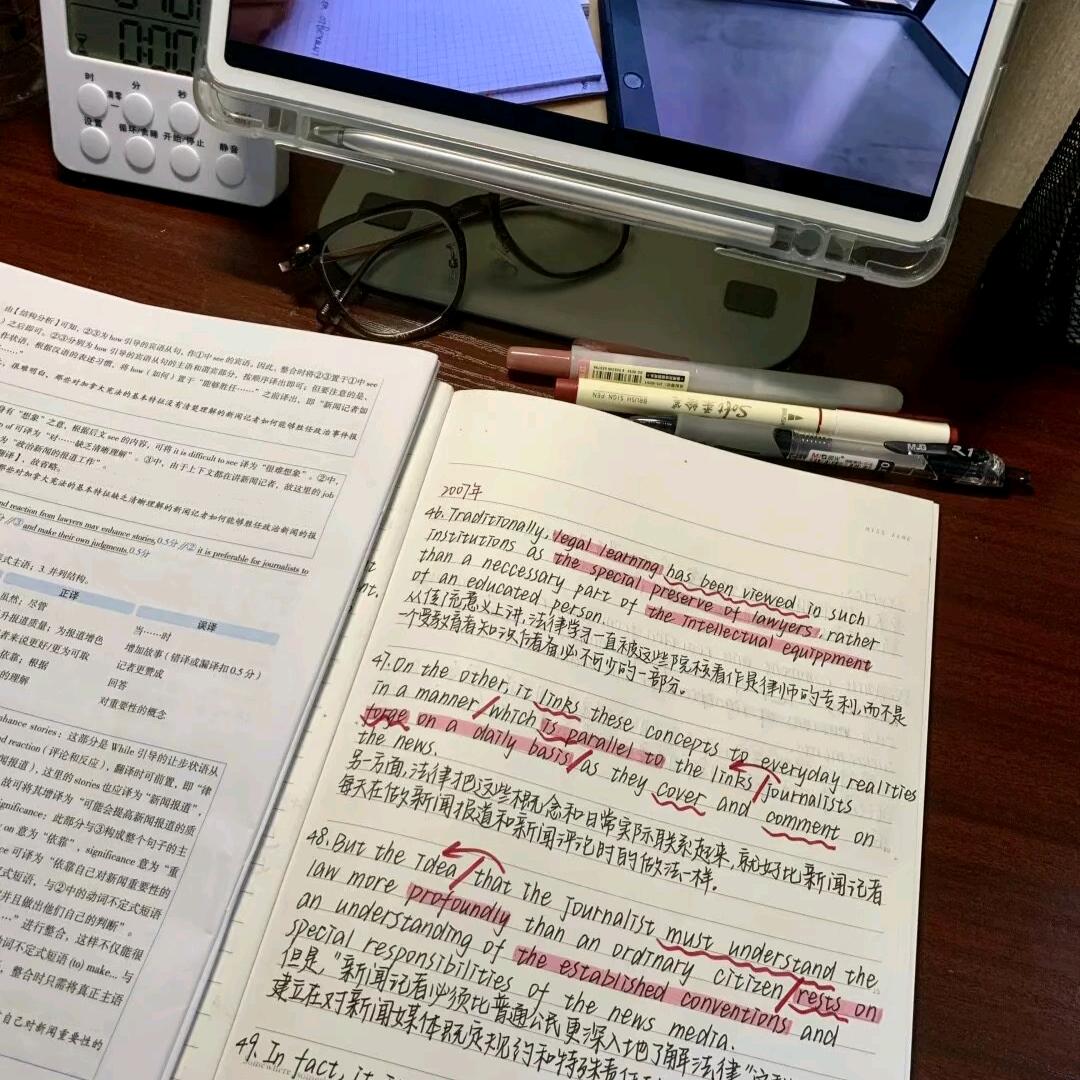 0:00
时 分 秒
清零
设置 循环 亮睡 开始/停止 静音
由【结构分析】可知,②③为 how 引导的宾语从句,作①中 see
)之后即可。②③分别为 how 引导的宾语从句的主语和谓宾部分,按顺序译出即可;但要注意的是、
作状语,根据汉语的表述习惯,将 how(如何)置于“能够胜任……”之前译出,即“新闻记者如
很难明白,那些对加拿大宪法的基本特征没有清楚理解的新闻记者如何能够胜任政治事件报
有“想象”之意,根据后文 see 的内容,可将 it is difficult to see 译为“很难想象”。②中,
n of 可译为“对……缺乏清晰理解”。③中,由于上下文都在讲新闻记者,故这里的 job
为“政治新闻的报道工作”。
翻译】,故省略。
那些对加拿大宪法的基本特征缺乏清晰理解的新闻记者如何能够胜任政治新闻的报
and reaction from lawyers may enhance stories, 0.5分 //② it is preferable for journalists to
//③ and make their own judgments. 0.5分
式主语;3. 并列结构。
正译 误译
虽然;尽管 当……时
升报道质量;为报道增色 增加故事(错译或漏译扣 0.5 分)
者来说更好/更为可取 记者更赞成
依靠;根据 回答
的理解 对重要性的概念
nhance stories:这部分是 While 引导的让步状语从
nd reaction(评论和反应),翻译时可前置,即“律
闻报道),这里的 stories 也应译为“新闻报道”,
故可将其增译为“可能会提高新闻报道的质
gnificance:此部分与③构成整个句子的主
y on 意为“依靠”,significance 意为“重
ce 可译为“依靠自己对新闻重要性的
式短语,与②中的动词不定式短语
并且做出他们自己的判断”。
……”进行整合,这样不仅能很
动词不定式短语 (to) make... 与
,整合时只需将真正主语
自己对新闻重要性的
BRUSH SIGN PEN
Soft
M&G
MISS JANE
2007年
46. Traditionally, legal learning has been viewed in such
institutions as the special preserve of lawyers, rather
than a neccessary part of the intellectual equippment
of an educated person.
从传统意义上讲,法律学习一直被这些院校看作是律师的专利,而不是
一个受教育者知识储备必不可少的一部分。
47. On the other, it links these concepts to everyday realities
in a manner/which is parallel to the links/journalists
forge on a daily basis/as they cover and comment on
the news.
另一方面,法律把这些概念和日常实际联系起来,就好比新闻记者
每天在做新闻报道和新闻评论时的做法一样。
48. But the idea/that the journalist must understand the
law more profoundly than an ordinary citizen/rests on
an understanding of the established conventions and
special responsibilities of the news media.
但是,“新闻记者必须比普通公民更深入地了解法律”
建立在对新闻媒体既定规约和特殊责任
49. In fact, it